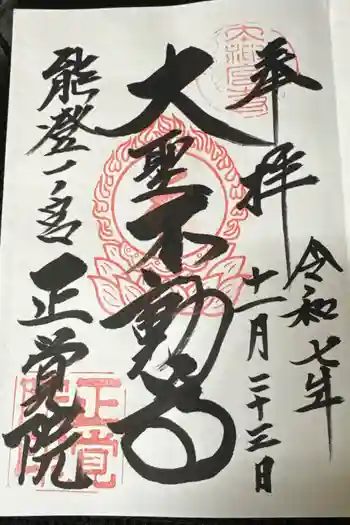 奉拝
令和七年
十一月二十三日
大聖不動尊
能登一ノ宮
正覚院
正覚
院印